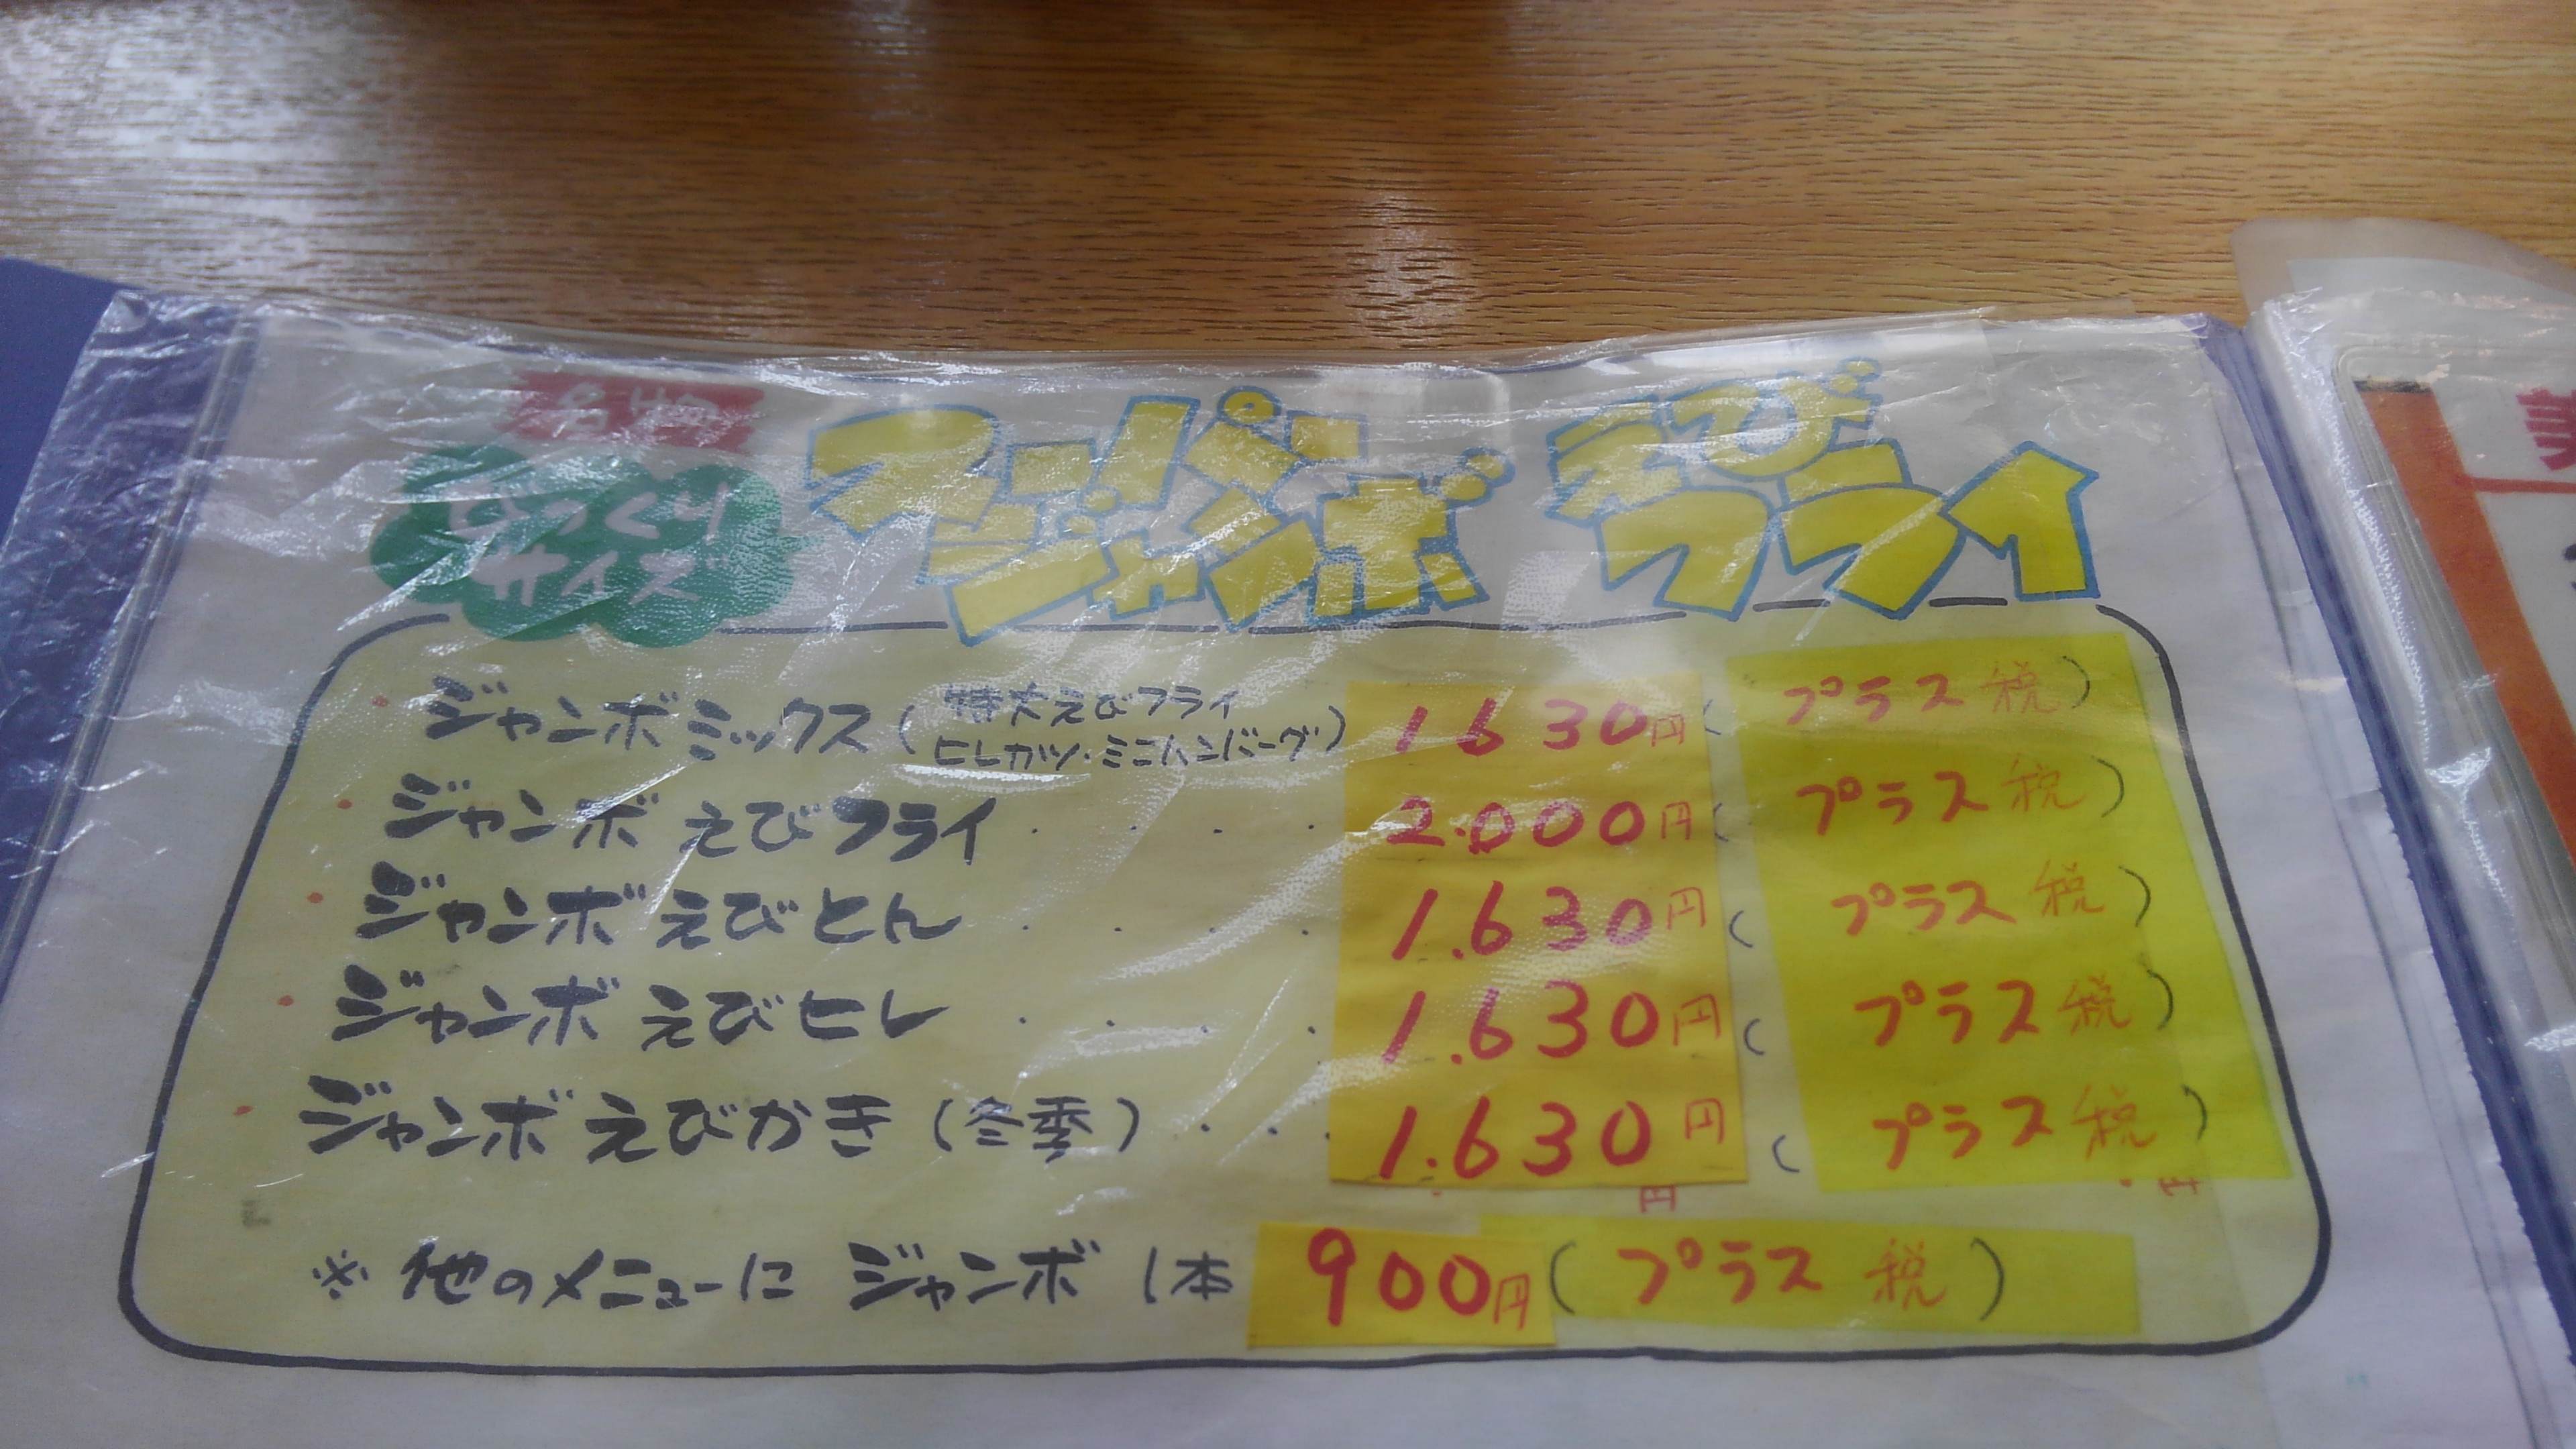 名物
びっくり
サイズ
スーパー
ジャンボ
えび
フライ
・ジャンボミックス(特大えびフライ
ヒレカツ・ミニハンバーグ) 1630円(プラス税)
・ジャンボ えびフライ・・・・ 2.000円(プラス税)
・ジャンボ えびとん・・・・ 1.630円(プラス税)
・ジャンボ えびヒレ・・・・ 1.630円(プラス税)
・ジャンボ えびかき(冬季)・・・・ 1.630円(プラス税)
円
※ 他のメニューに ジャンボ 1本 900円(プラス税)